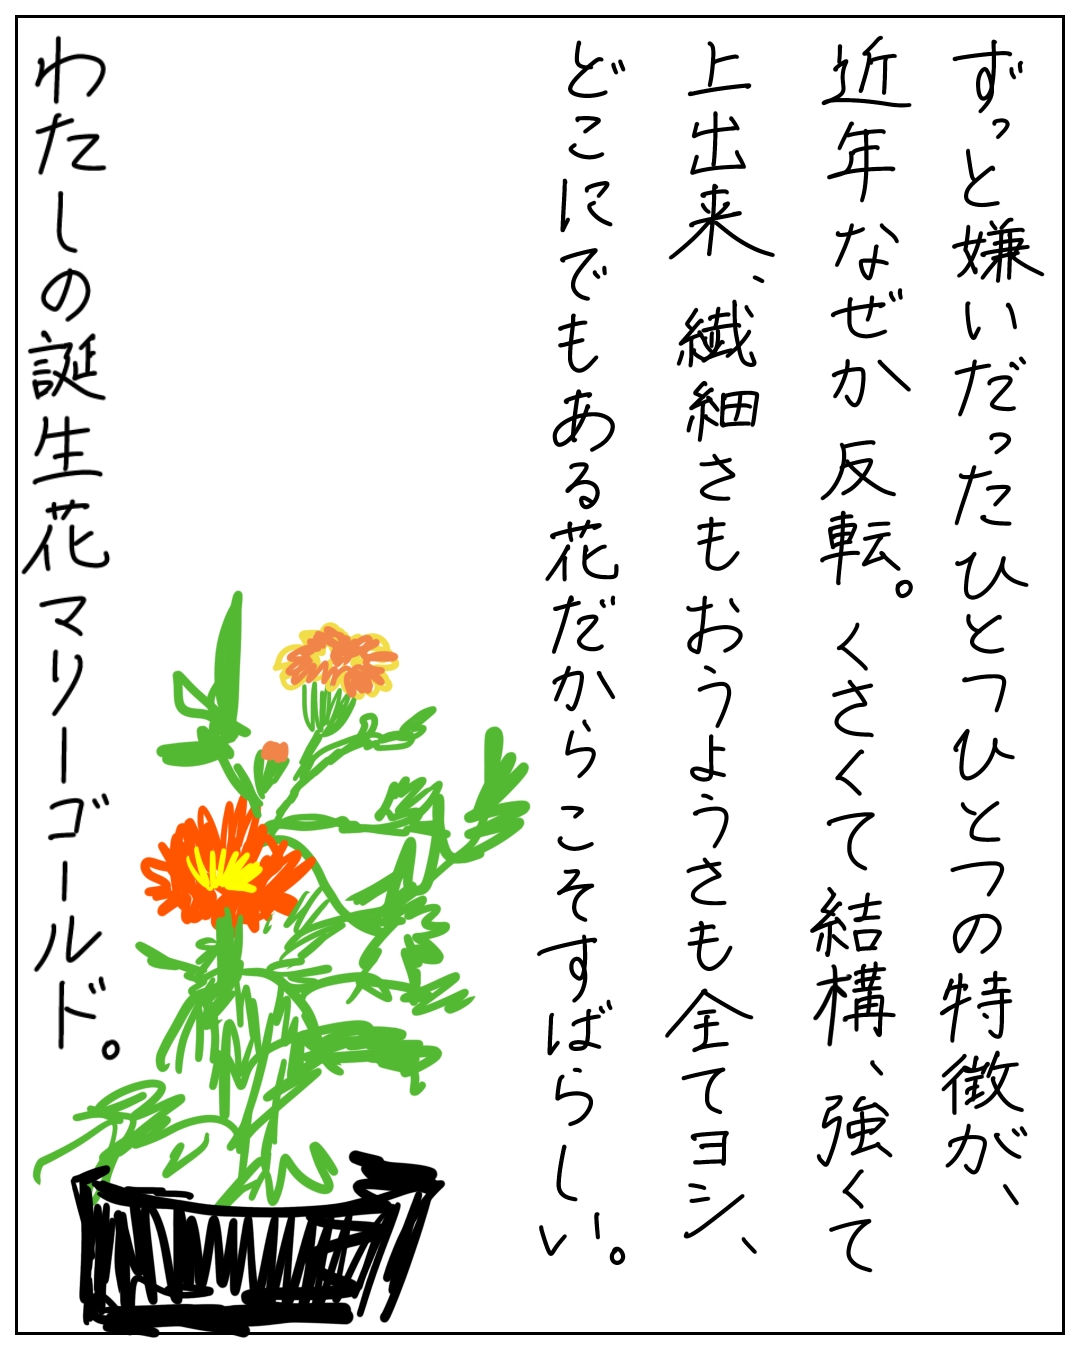 ずっと嫌いだったひとつひとつの特徴が、
近年なぜか反転。くさくて結構、強くて
上出来、繊細さもおうようさも全てヨシ、
どこにでもある花だからこそすばらしい。
わたしの誕生花マリーゴールド。